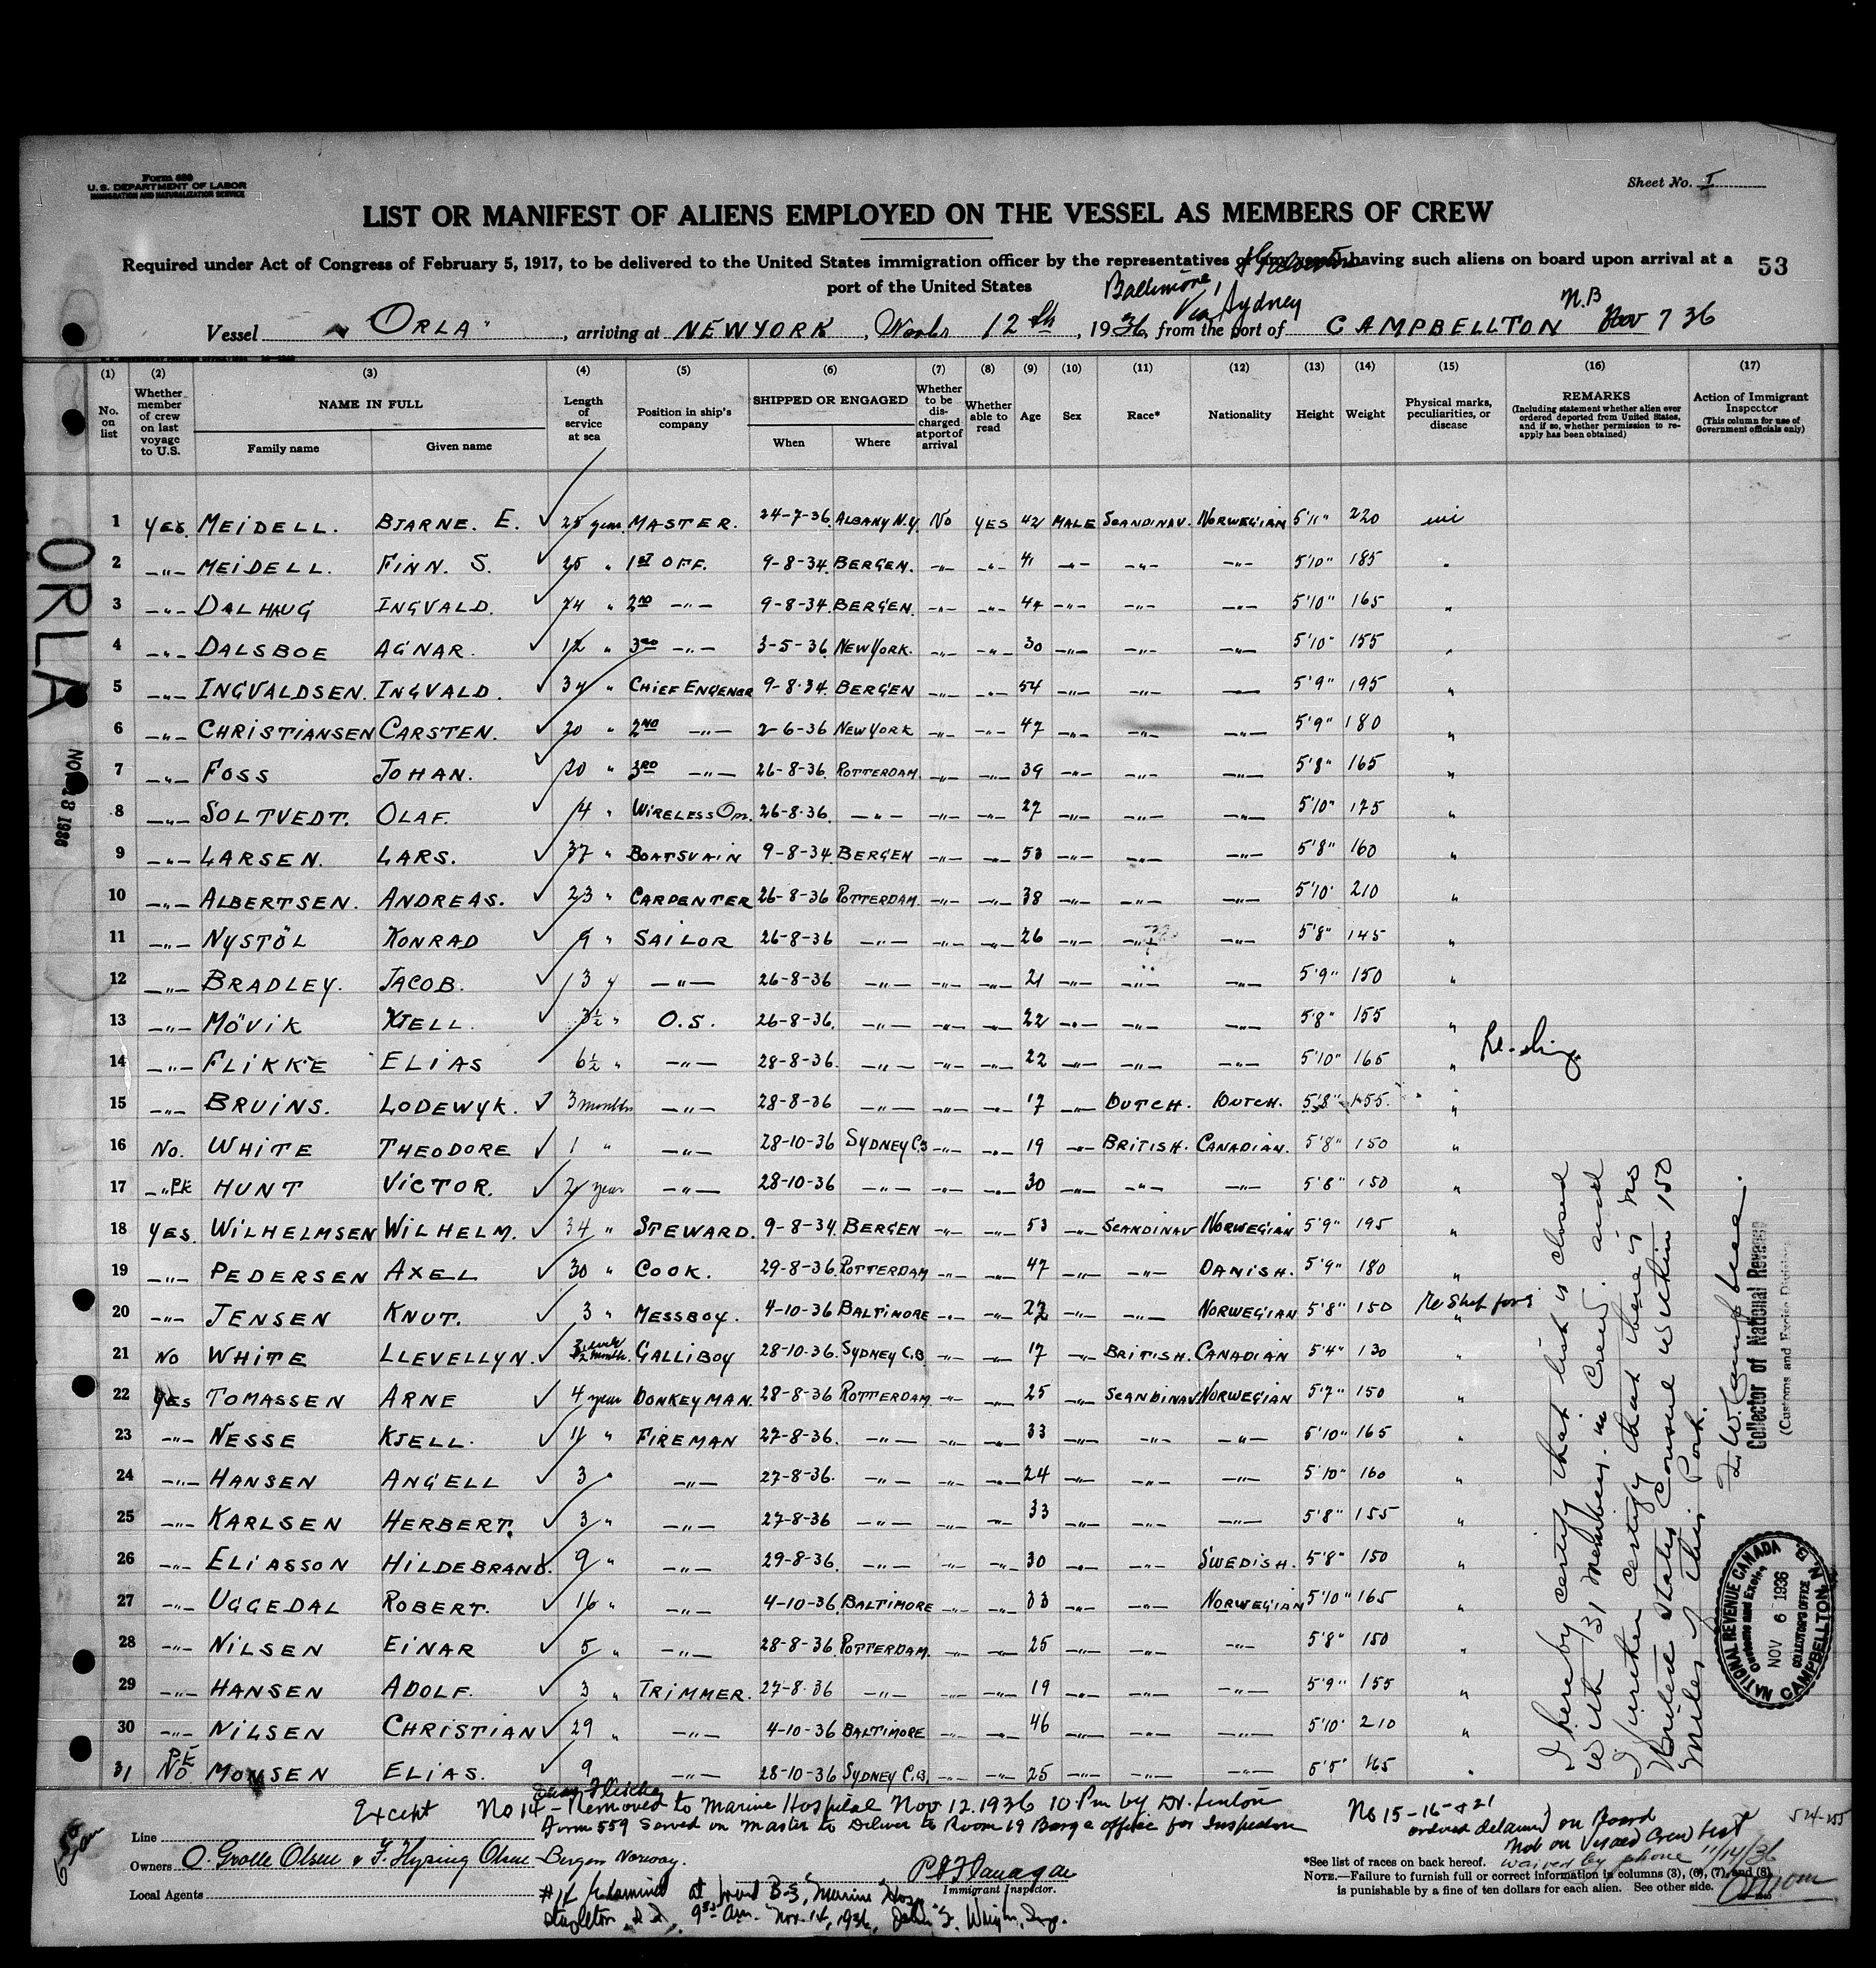 Form 680
U. S. DEPARTMENT OF LABOR
IMMIGRATION AND NATURALIZATION SERVICE
Sheet No. I
LIST OR MANIFEST OF ALIENS EMPLOYED ON THE VESSEL AS MEMBERS OF CREW
Required under Act of Congress of February 5, 1917, to be delivered to the United States immigration officer by the representatives of any vessel having such aliens on board upon arrival at a
port of the United States
53
Baltimore, Via Sydney N.B
Vessel "ORLA", arriving at NEW YORK, 12th, 1936, from the port of CAMPBELLTON Nov 7 36
(1) (2) (3) (4) (5) (6) (7) (8) (9) (10) (11) (12) (13) (14) (15) (16) (17)
No. on list
Whether member of crew on last voyage to U.S.
NAME IN FULL
Family name
Given name
Length of service at sea
Position in ship's company
SHIPPED OR ENGAGED
When
Where
Whether to be discharged at port of arrival
Whether able to read
Age
Sex
Race*
Nationality
Height
Weight
Physical marks, peculiarities, or disease
REMARKS
(Including statement whether alien ever ordered deported from United States, and if so, whether permission to reapply has been obtained)
Action of Immigrant Inspector
(This column for use of Government officials only)
1 YES. MEIDELL. BJARNE. E. 25 years MASTER. 24-7-36. ALBANY N.Y. NO YES 42 MALE SCANDINAV. NORWEGIAN 5'11" 220
2 -"- MEIDELL. FINN. S. 25 " 1ST OFF. 9-8-34. BERGEN. -"- -"- 41 -"- -"- -"- 5'10" 185 "
3 -"- DALHAUG INGVALD. 24 " 2ND -"- 9-8-34. BERGEN. -"- -"- 44 -"- -"- -"- 5'10" 165 "
4 -"- DALSBOE AGNAR. 12 " 3RD -"- 3-5-36. NEW YORK. -"- -"- 30 -"- -"- -"- 5'10" 155 "
5 -"- INGVALDSEN. INGVALD. 34 " CHIEF ENGENER 9-8-34. BERGEN -"- -"- 54 -"- -"- -"- 5'9" 195 "
6 -"- CHRISTIANSEN CARSTEN. 20 " 2ND -"- 2-6-36 NEW YORK -"- -"- 47 -"- -"- -"- 5'9" 180 "
7 -"- FOSS JOHAN. 20 " 3RD -"- 26-8-36. ROTTERDAM. -"- -"- 39 -"- -"- -"- 5'8" 165 "
8 -"- SOLTVEDT. OLAF. 14 " WIRELESS OP. 26-8-36. -"- -"- -"- 27 -"- -"- -"- 5'10" 175 "
9 -"- LARSEN. LARS. 37 " BOATSVAIN 9-8-34. BERGEN -"- -"- 53 -"- -"- -"- 5'8" 160 "
10 -"- ALBERTSEN. ANDREAS. 23 " CARPENTER 26-8-36 ROTTERDAM. -"- -"- 38 -"- -"- -"- 5'10" 210 "
11 -"- NYSTÖL KONRAD 9 " SAILOR 26-8-36 -"- -"- -"- 26 -"- -"- -"- 5'8" 145 "
12 -"- BRADLEY. JACOB. 3 " -"- 26-8-36 -"- -"- -"- 21 -"- -"- -"- 5'9" 150 "
13 -"- MÖVIK KJELL. 3½ " O.S. 26-8-36. -"- -"- -"- 22 -"- -"- -"- 5'8" 155 "
14 -"- FLIKKE ELIAS 6½ " -"- 28-8-36. -"- -"- -"- 22 -"- -"- -"- 5'10" 165 "
15 -"- BRUINS. LODEWYK. 3 months -"- 28-8-36 -"- -"- -"- 17 -"- DUTCH. DUTCH. 5'8" 155. "
16 No. WHITE THEODORE 1 " -"- 28-10-36 SYDNEY C.B -"- -"- 19 -"- BRITISH. CANADIAN. 5'8" 150 "
17 -"- HUNT VICTOR. 2 year -"- 28-10-36 -"- -"- -"- 30 -"- -"- -"- 5'8" 150 "
18 YES. WILHELMSEN WILHELM. 34 " STEWARD. 9-8-34. BERGEN -"- -"- 53 -"- SCANDINAV NORWEGIAN 5'9" 195 "
19 -"- PEDERSEN AXEL 30 " COOK. 29-8-36. ROTTERDAM -"- -"- 47 -"- -"- DANISH. 5'9" 180 "
20 -"- JENSEN KNUT. 3 " MESSBOY. 4-10-36 BALTIMORE -"- -"- 22 -"- -"- NORWEGIAN 5'8" 150
21 NO WHITE LLEVELLYN. GALLIBOY 28-10-36. SYDNEY C.B. -"- -"- 17 -"- BRITISH. CANADIAN 5'4" 130 "
22 YES TOMASSEN ARNE 4 year DONKEYMAN. 28-8-36 ROTTERDAM. -"- -"- 25 -"- SCANDINAV. NORWEGIAN 5'7" 150 "
23 -"- NESSE KJELL. 11 " FIREMAN 27-8-36. -"- -"- -"- 33 -"- -"- -"- 5'10" 165 "
24 -"- HANSEN ANGELL 3 " -"- 27-8-36. -"- -"- -"- 24 -"- -"- -"- 5'10" 160 "
25 -"- KARLSEN HERBERT. 3 " -"- 27-8-36 -"- -"- -"- 33 -"- -"- -"- 5'8" 155 "
26 -"- ELIASSON HILDEBRAND. 9 " -"- 29-8-36. -"- -"- -"- 30 -"- -"- SWEDISH. 5'8" 150 "
27 -"- UGGEDAL ROBERT. 16 " -"- 4-10-36. BALTIMORE -"- -"- 33 -"- -"- NORWEGIAN 5'10" 165 "
28 -"- NILSEN EINAR 5 " -"- 28-8-36 ROTTERDAM. -"- -"- 25 -"- -"- -"- 5'8" 150 "
29 -"- HANSEN ADOLF. 3 " TRIMMER. 27-8-36 -"- -"- -"- 19 -"- -"- -"- 5'9" 155 "
30 -"- NILSEN CHRISTIAN 29 " -"- 4-10-36 BALTIMORE -"- -"- 46 -"- -"- -"- 5'10" 210 "
31 NO MONSEN ELIAS. 9 -"- 28-10-36 SYDNEY C.B. -"- -"- 25 -"- -"- -"- 5'5" 165 "
ORLA
18 1936
I hereby certify that list is closed
with 31 members in crew. and
I further certify that there is no
United States Consul within 150
miles of this Port.
Collector of National Revenue
(Customs and Excise Division)
NATIONAL REVENUE CANADA
Customs and Excise
NOV 6 1936
COLLECTOR'S OFFICE
CAMPBELLTON, N.B.
Except No 14 - Removed to Marine Hospital Nov. 12. 1936 10 Pm by Dr. Fenton
Form 559 Served on Master to Deliver to Room 19 Barge office for Inspection
No 15-16-&21
ordered detained on Board
not on visaed Crew List
waived by phone 11/14/36
Line
Owners O. Grolle Olsen & F. Hysing Olsen - Bergen Norway.
Local Agents
Immigrant Inspector.
#14 Examined at Marine Hosp
Stapleton, S.I., 9 30 Am. Nov. 14, 1936,
*See list of races on back hereof.
NOTE.—Failure to furnish full or correct information in columns (3), (6), (7), and (8),
is punishable by a fine of ten dollars for each alien. See other side.